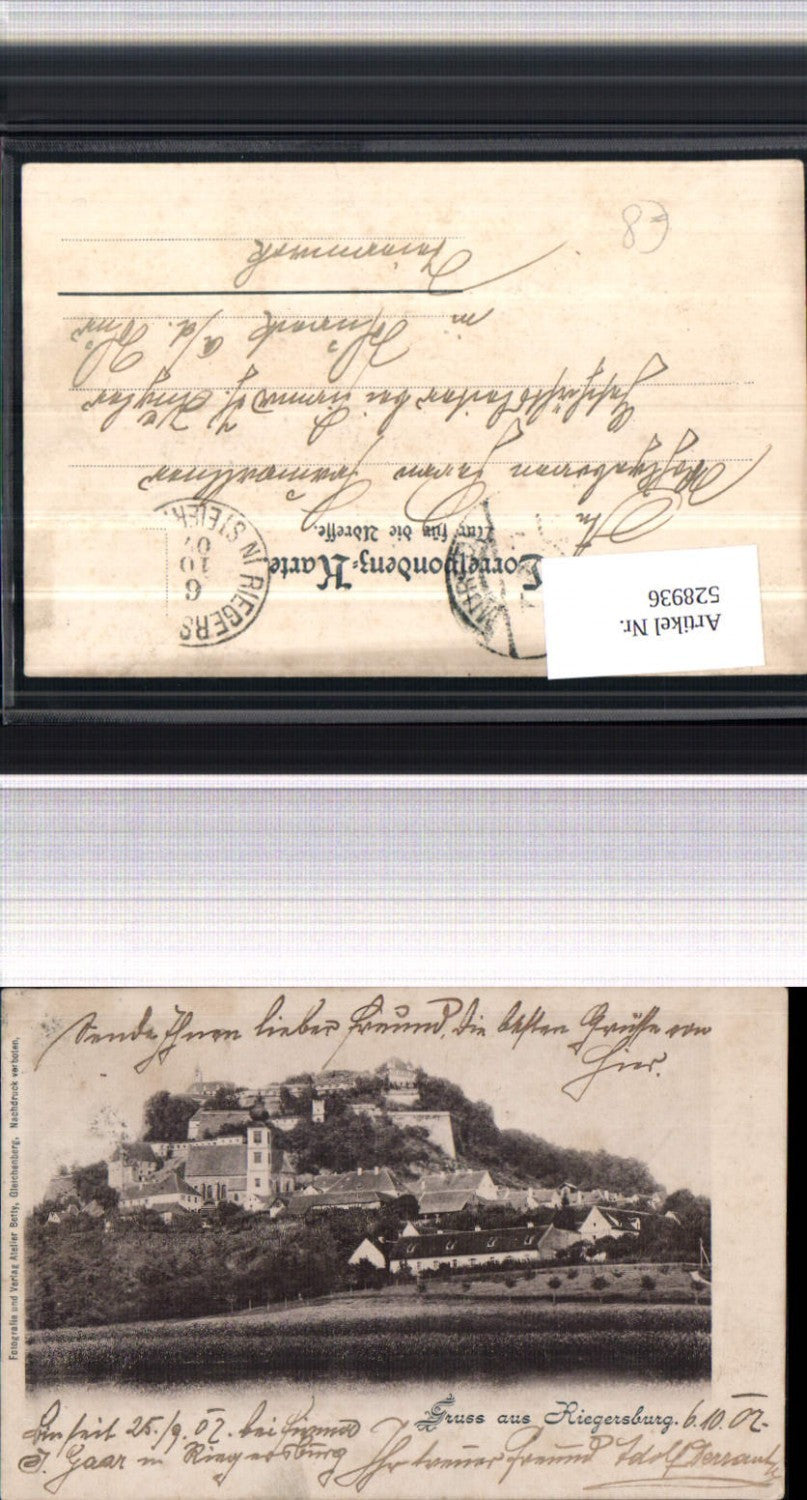 Artikel Nr.
528936
Correspondenz-Karte
Nur für die Adresse.
RIEGERSBURG IN STEIER.
6
10
02
An
Wohlgeboren Herrn
Geschäftsleiter bei Firma J.
in a/d. Mur
Steiermark
Sende Ihnen lieber Freund, die besten Grüsse von
hier.
Fotografie und Verlag Atelier Betty, Gleichenberg. Nachdruck verboten.
Gruss aus Riegersburg. 6.10.02.
Bin seit 25./9.02. bei Firma
J. Gaar in Riegersburg
Ihr treuer Freund Adolf